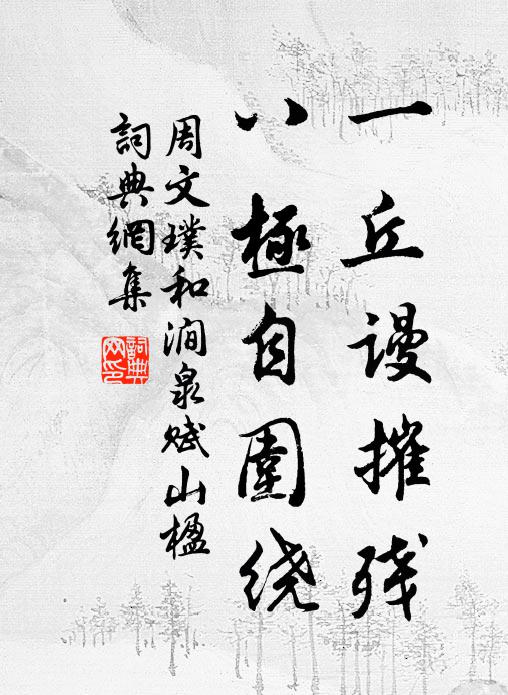 一丘谩摧残
八極自圍绕
周文璞和澗泉賦山楹
詞典網集
詞典網印